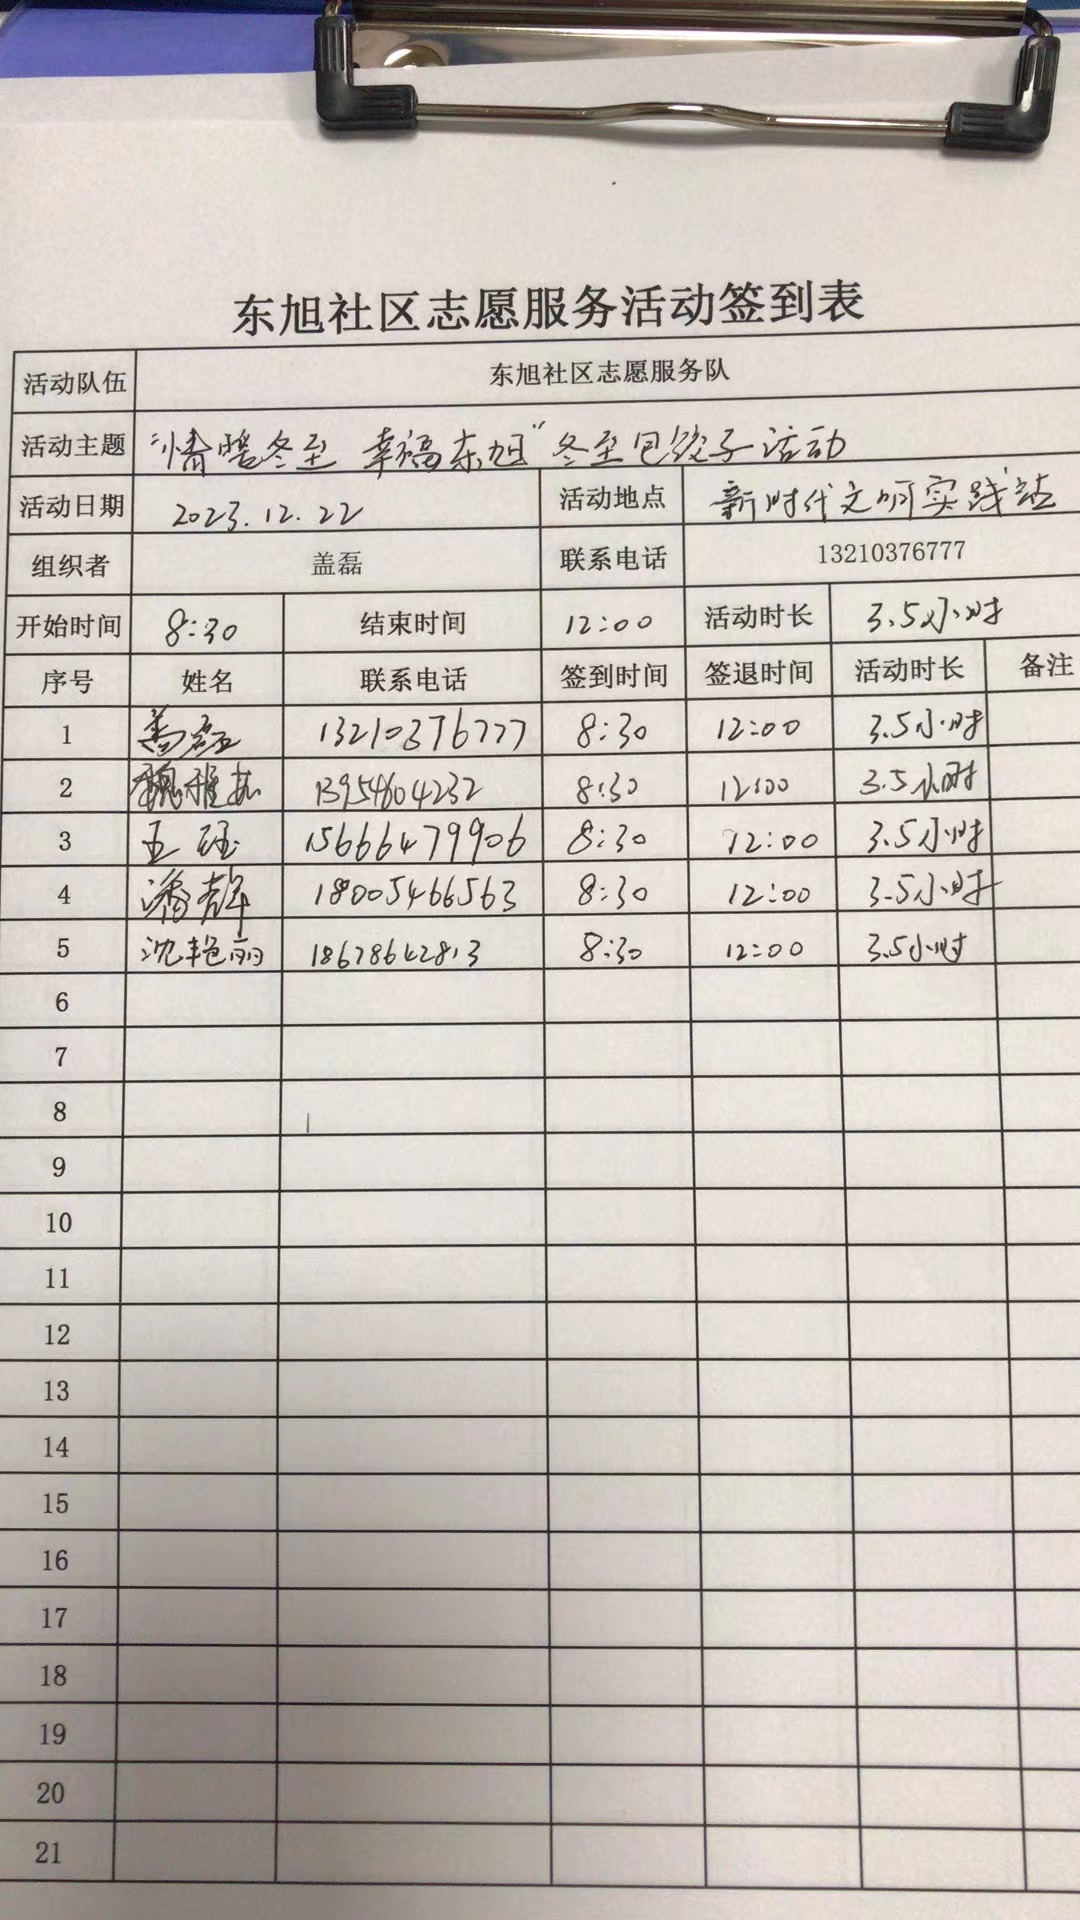 东旭社区志愿服务活动签到表
活动队伍 东旭社区志愿服务队
活动主题 “情暖冬至 幸福东旭”冬至包饺子活动
活动日期 2023.12.22 活动地点 新时代文明实践站
组织者 盖磊 联系电话 13210376777
开始时间 8:30 结束时间 12:00 活动时长 3.5小时
序号 姓名 联系电话 签到时间 签退时间 活动时长 备注
1 盖磊 13210376777 8:30 12:00 3.5小时
2 13954604232 8:30 12:00 3.5小时
3 王 15666479906 8:30 12:00 3.5小时
4 潘 18005466563 8:30 12:00 3.5小时
5 沈艳丽 18678642813 8:30 12:00 3.5小时
6
7
8
9
10
11
12
13
14
15
16
17
18
19
20
21